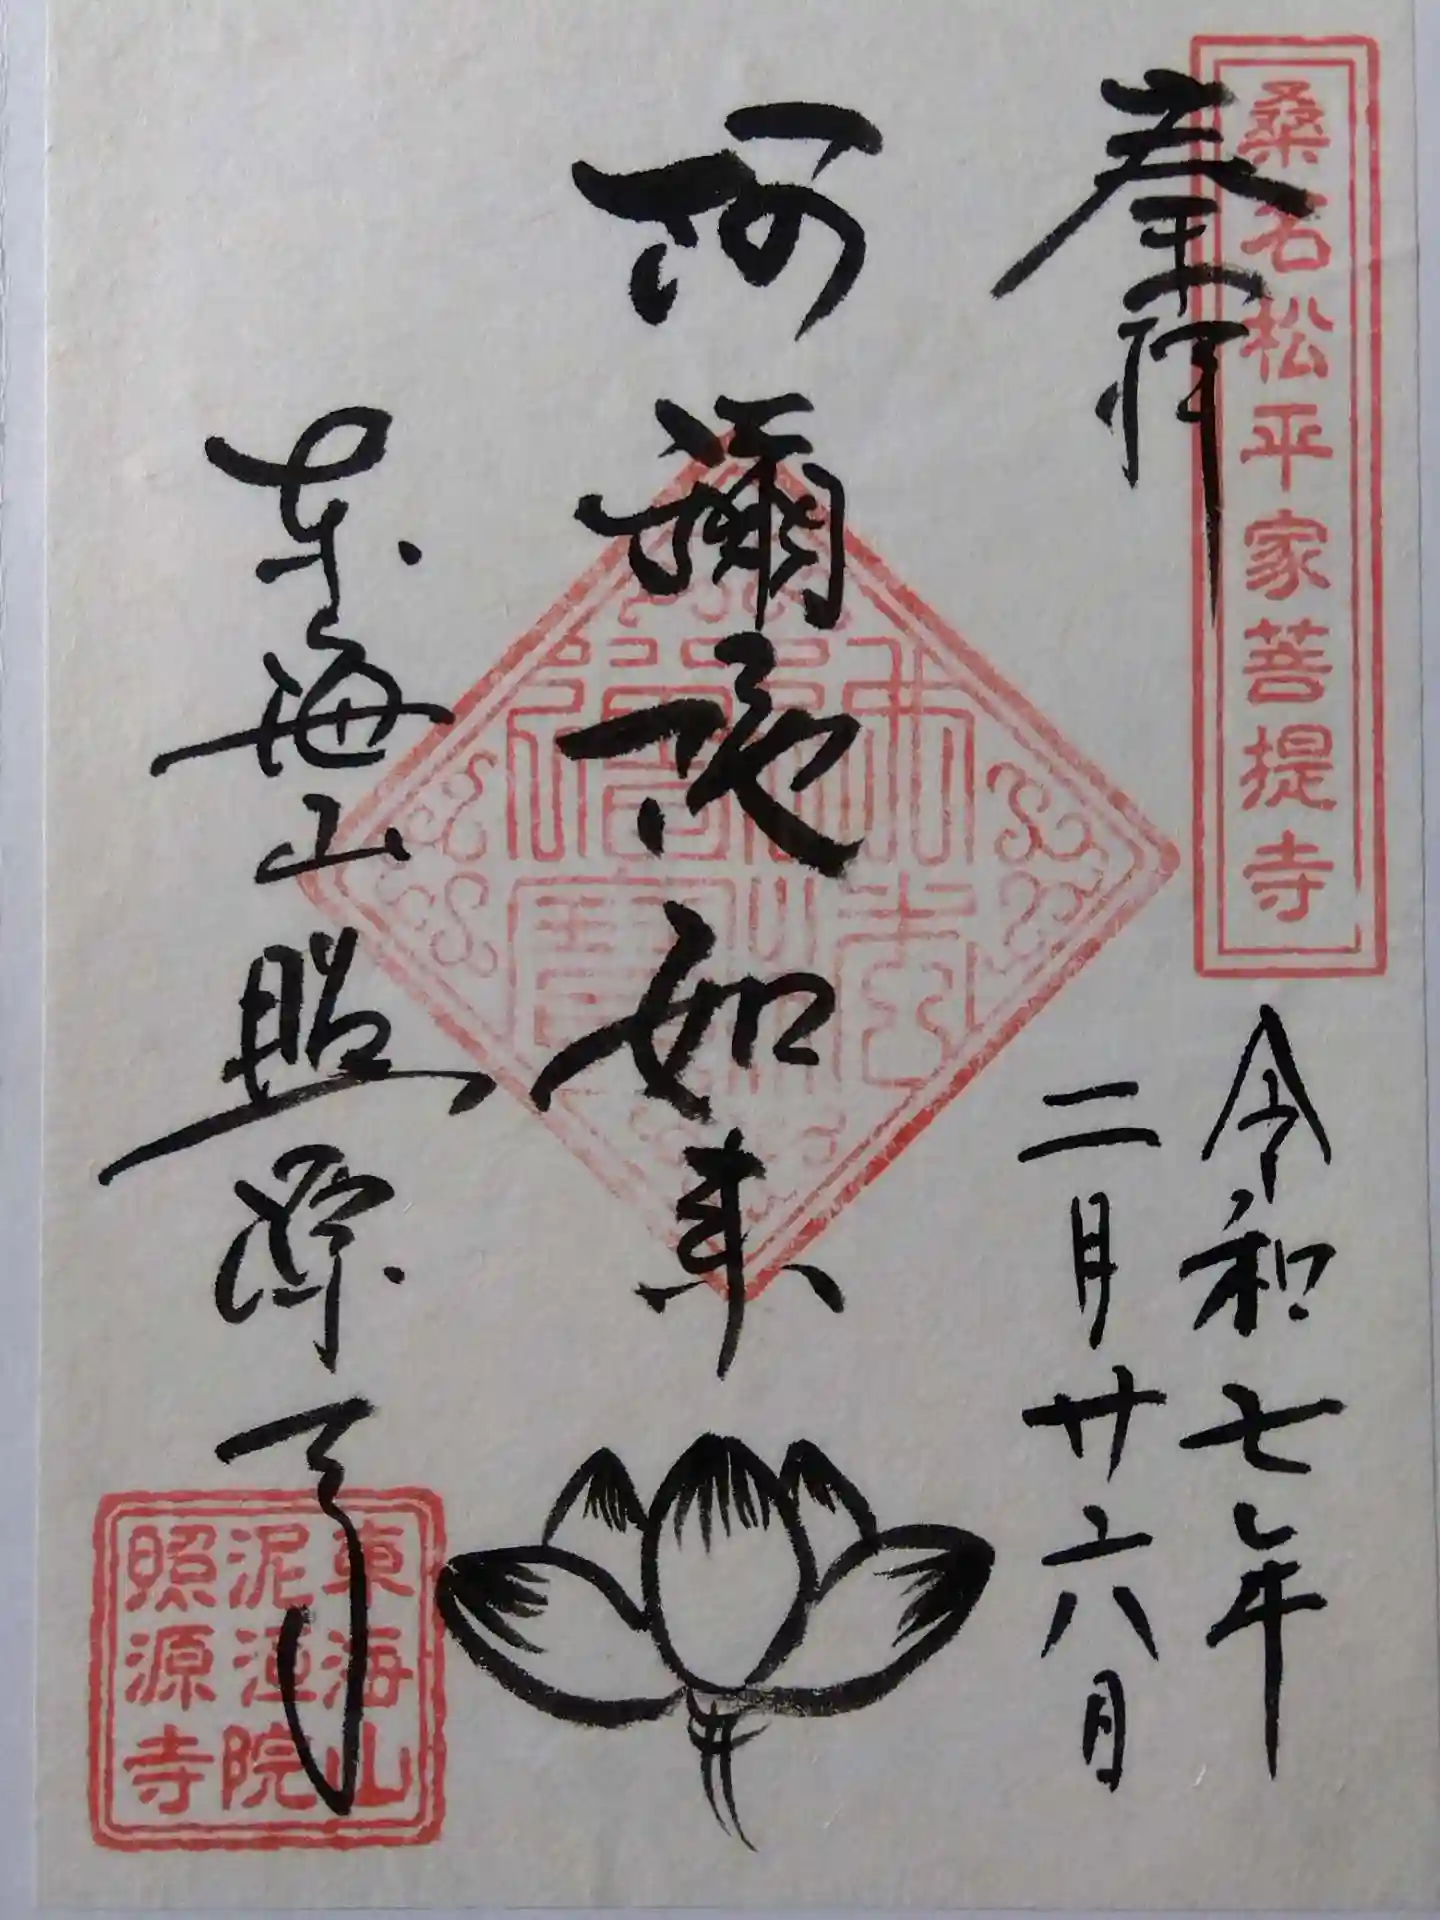 桑名松平家菩提寺
奉拝
令和七年
二月廿六日
阿彌陀如来
佛法
僧寶
東海山照源寺
東海山
泥洹院
照源寺